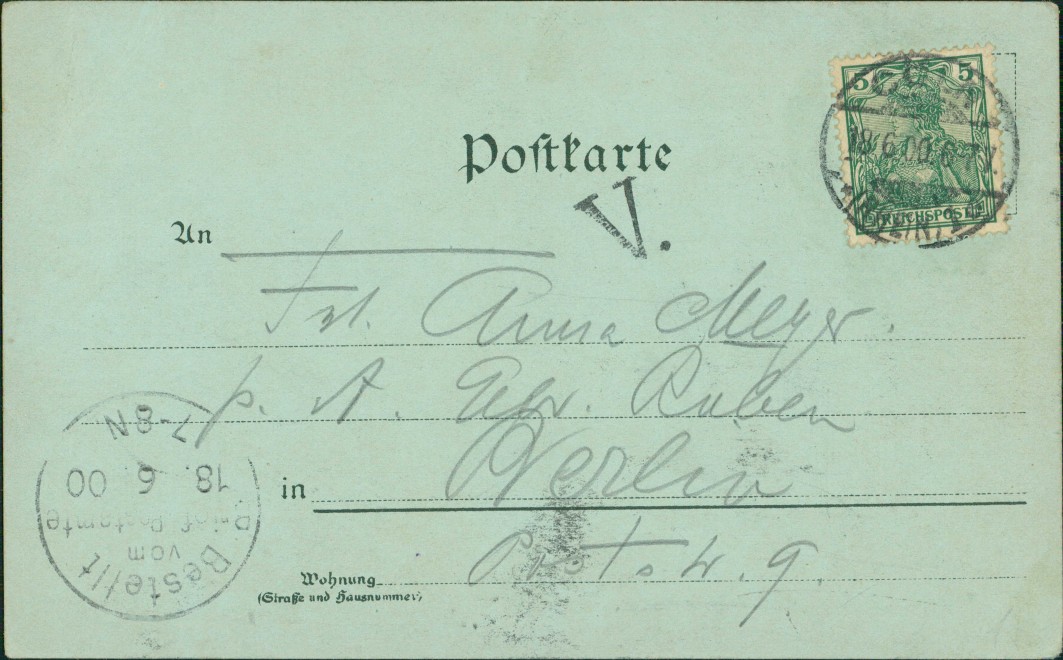 Postkarte
5 5
REICHSPOST
18.6.00.6-7V
V.
An
Frl. Anna Meyer.
p. A. Gebr. Ruben
in Berlin
Wohnung
(Straße und Hausnummer)
7-8N
18. 6. 00
Brief Postamte
vom
Bestellt